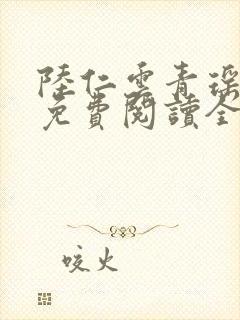 陸仁雲青瑤
免費閱讀全
咬火